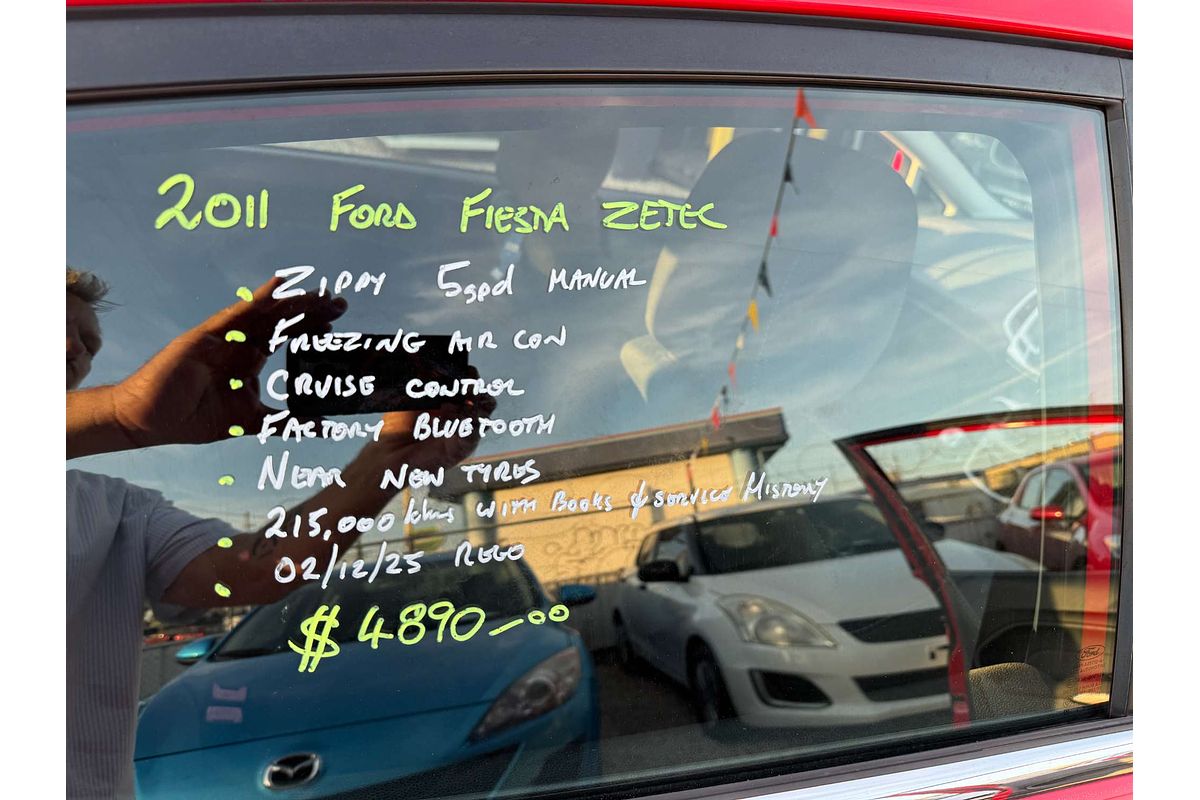 2011 FORD FIESTA ZETEC
• ZIPPY 5spd MANUAL
• FREEZING AIR CON
• CRUISE CONTROL
• FACTORY BLUETOOTH
• NEAR NEW TYRES
• 215,000 kms WITH BOOKS & SERVICE HISTORY
• 02/12/25 REGO
$4890-00
Ford